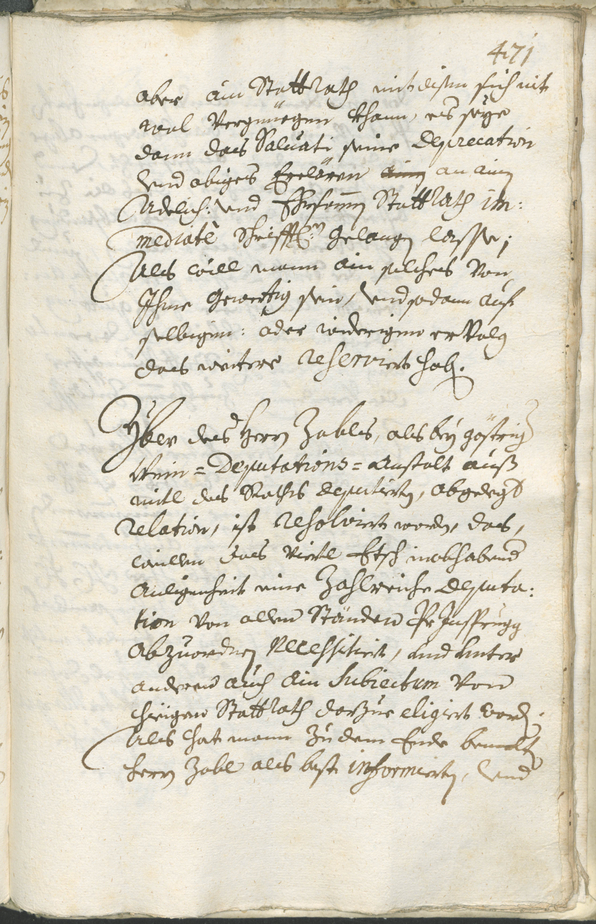 471
aber ain Stattrath mit disem sich nit
wol vergniegen khan, es seye
dann das Salvati seine deprecation
vnd abiges Erclären an ain
Adelich: vnd Ehrsamen Stattrath im:
mediatè schrifftl: gelangen lasse;
Als will mann ain solches von
Ihme gewertig sein, vnd sodann auf
selbigen: oder widerigen ervolg
das weitere reserviert hab.
Yber des Herrn Zobls, als bey göstrig
Wein= Deputations= Anstalt auß
mitl des Raths deputierten, abgelegte
relation, ist resolviert worden, das,
weillen das Viertl Etsch mobhabend
Anligenheit eine Zahlreiche Deputa:
tion von allen Ständen Ynsprugg
abzuordnen necessitiert, und unter
anderen auch ain Subiectum von
hieigen Stattrath darzue eligiert word.
Als hat mann zu dem Ende bemelt
Herrn Zobl als best informierten, vnd